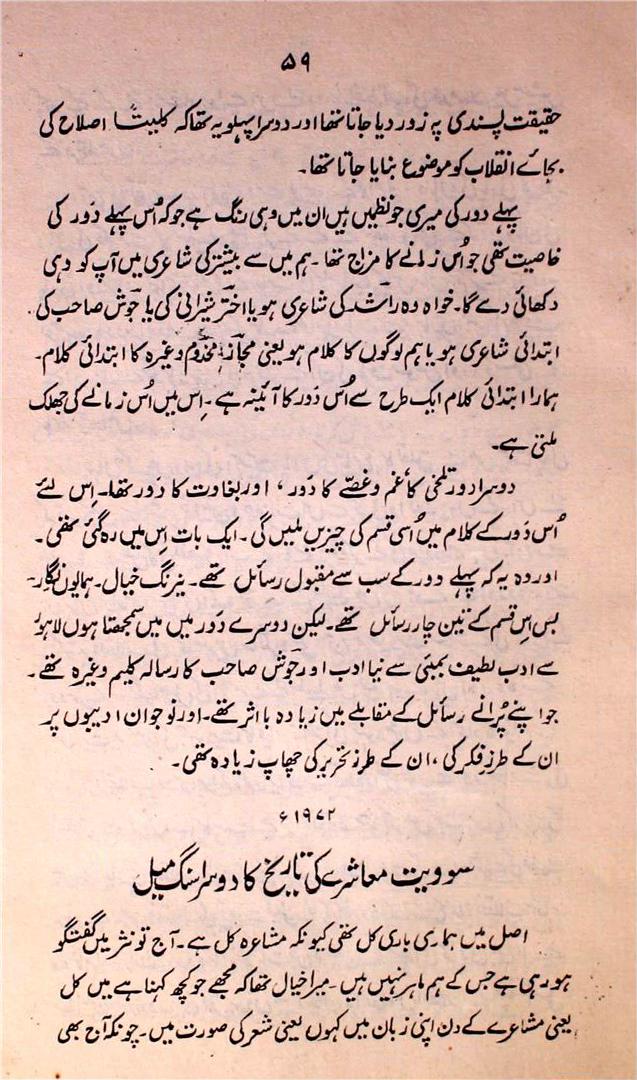 ۵۹
حقیقت پسندی پہ زور دیا جاتا تھا اور دوسرا پہلو یہ تھا کہ کلیتاً اصلاح کی
بجائے انقلاب کو موضوع بنایا جاتا تھا۔
پہلے دور کی میری جو نظمیں ہیں ان میں وہی رنگ ہے جو کہ اُس پہلے دَور کی
خاصیت تھی جو اُس زمانے کا مزاج تھا۔ ہم میں سے بیشتر کی شاعری میں آپ کو وہی
دکھائی دے گا۔ خواہ وہ راشد کی شاعری ہو یا اختر شیرانی کی یا جوش صاحب کی
ابتدائی شاعری ہو یا ہم لوگوں کا کلام ہو یعنی مجاز، مخدوم وغیرہ کا ابتدائی کلام۔
ہمارا ابتدائی کلام ایک طرح سے اُس دَور کا آئینہ ہے۔ اِس میں اُس زمانے کی جھلک
ملتی ہے۔
دوسرا دور تلخی کا غم و غصّے کا دَور، اور بغاوت کا دَور تھا۔ اِس لئے
اُس دَور کے کلام میں اُسی قسم کی چیزیں ملیں گی۔ ایک بات اِس میں رہ گئی تھی۔
اور وہ یہ کہ پہلے دور کے سب سے مقبول رسائل تھے۔ نیرنگ خیال۔ ہمایوں نگار۔
بس اِس قسم کے تین چار رسائل تھے۔ لیکن دوسرے دَور میں میں سمجھتا ہوں لاہور
سے ادب لطیف بمبئی سے نیا ادب اور جوش صاحب کا رسالہ کلیم وغیرہ تھے۔
جو اپنے پُرانے رسائل کے مقابلے میں زیادہ با اثر تھے۔ اور نوجوان ادیبوں پر
ان کے طرزِ فکر کی، ان کے طرزِ تحریر کی چھاپ زیادہ تھی۔
۱۹۷۲ء
سوویت معاشرے کی تاریخ کا دوسرا سنگ میل
اصل میں ہماری باری کل تھی کیونکہ مشاعرہ کل ہے۔ آج تو نثر میں گفتگو
ہو رہی ہے جس کے ہم ماہر نہیں ہیں۔ میرا خیال تھا کہ مجھے جو کچھ کہنا ہے میں کل
یعنی مشاعرے کے دن اپنی زبان میں کہوں یعنی شعر کی صورت میں۔ چونکہ آج بھی